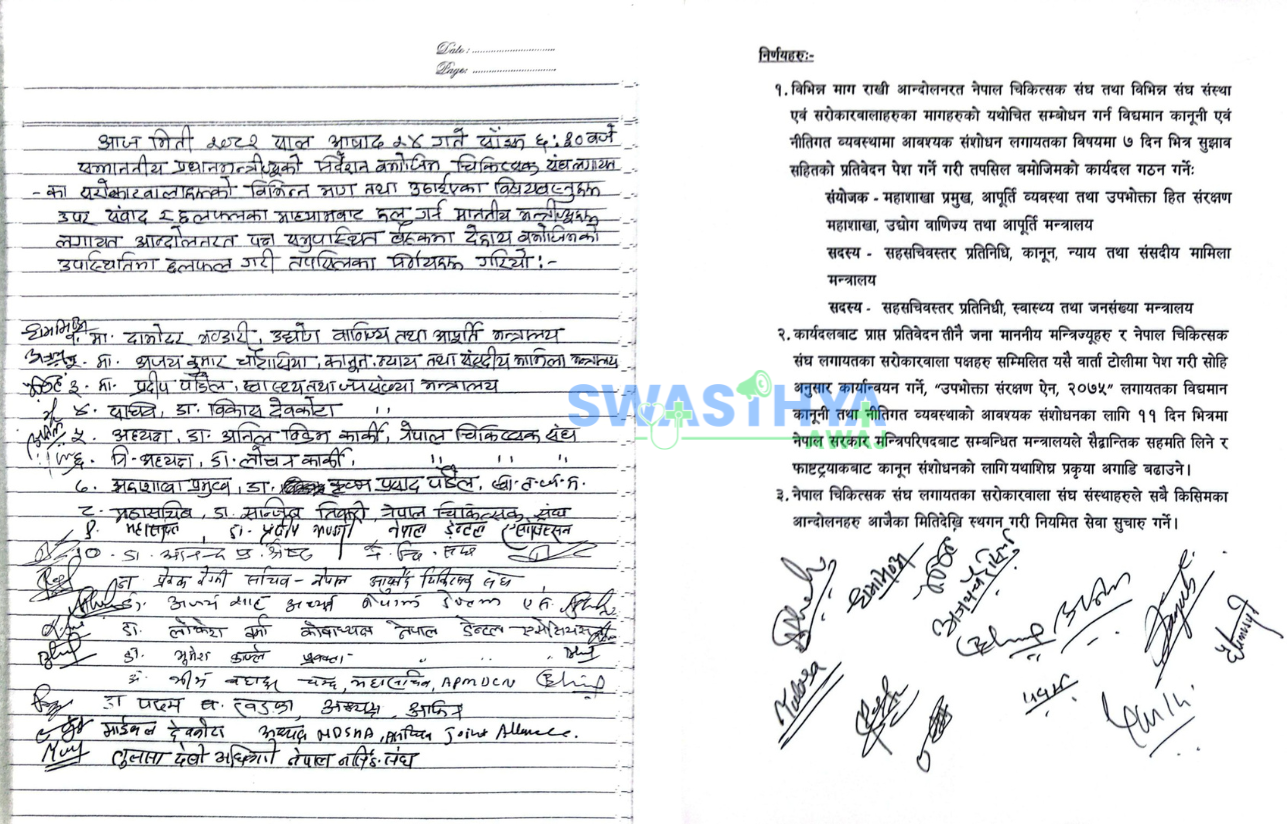 Date: ..............................
Page: ..............................
आज मिती २०८२ साल आषाढ २४ गते साँझ ६:१० बजे
सम्माननीय प्रधानमन्त्रीज्यूको निर्देशन बमोजिम चिकित्सक संघ लगायत
-का सरोकारवालाहरूको विभिन्न माग तथा उठाईएका विषयवस्तुहरू
उपर संवाद र छलफलका माध्यामबाट हल गर्न माननीय मन्त्रीज्यूहरू
लगायत आन्दोलनरत पक्ष समुपस्थित बैठकमा देहाय बमोजिमको
उपस्थितिमा छलफल गरी तपसिलका निर्णयहरू गरियो:-
१. मा. दामोदर भण्डारी, उद्योग वाणिज्य तथा आपूर्ति मन्त्रालय
२. मा. अजय कुमार चौरासिया, कानून, न्याय तथा संसदीय मामिला मन्त्रालय
३. मा. प्रदीप पौडेल, स्वास्थ्य तथा जनसंख्या मन्त्रालय
४. सचिव, डा. विकास देवकोटा " "
५. अध्यक्ष, डा. अनिल विक्रम कार्की, नेपाल चिकित्सक संघ
६. नि-अध्यक्ष, डा. लोचन कार्की, " " "
७. महाशाखा प्रमुख, डा. कृष्ण प्रसाद पौडेल,
८. महासचिव, डा. सन्जिब तिवारी, नेपाल चिकित्सक संघ
९. डा. नेपाल डेन्टल एसोसिएसन
१०. डा. आनन्द
डा सचिव - नेपाल आयुर्वेद चिकित्सक संघ
डा. अजय साह अध्यक्ष नेपाल डेन्टल
डा. लोकेश कोषाध्यक्ष नेपाल डेन्टल एसोसियसन
डा. प्रवक्ता - " "
डा. भीम बहादुर चन्द, महासचिव, APMDCN
डा पदम ब. खड्का, अध्यक्ष,
माईकल देवकोटा अध्यक्ष Joint Alliance.
तुलसा देवी अधिकारी नेपाल नर्सिङ संघ
निर्णयहरुः-
१. विभिन्न माग राखी आन्दोलनरत नेपाल चिकित्सक संघ तथा विभिन्न संघ संस्था
एवं सरोकारवालाहरुका मागहरुको यथोचित सम्बोधन गर्न विद्यमान कानूनी एवं
नीतिगत व्यवस्थामा आवश्यक संशोधन लगायतका विषयमा ७ दिन भित्र सुझाव
सहितको प्रतिवेदन पेश गर्ने गरी तपसिल बमोजिमको कार्यदल गठन गर्नेः
संयोजक - महाशाखा प्रमुख, आपूर्ति व्यवस्था तथा उपभोक्ता हित संरक्षण
महाशाखा, उद्योग वाणिज्य तथा आपूर्ति मन्त्रालय
सदस्य - सहसचिवस्तर प्रतिनिधि, कानून, न्याय तथा संसदीय मामिला
मन्त्रालय
सदस्य - सहसचिवस्तर प्रतिनिधी, स्वास्थ्य तथा जनसंख्या मन्त्रालय
२. कार्यदलबाट प्राप्त प्रतिवेदन तीनै जना माननीय मन्त्रिज्यूहरु र नेपाल चिकित्सक
संघ लगायतका सरोकारवाला पक्षहरु सम्मिलित यसै वार्ता टोलीमा पेश गरी सोहि
अनुसार कार्यान्वयन गर्ने, "उपभोक्ता संरक्षण ऐन, २०७५" लगायतका विद्यमान
कानूनी तथा नीतिगत व्यवस्थाको आवश्यक संशोधनका लागि ११ दिन भित्रमा
नेपाल सरकार मन्त्रिपरिषदबाट सम्बन्धित मन्त्रालयले सैद्वान्तिक सहमति लिने र
फाष्टट्र्याकबाट कानून संशोधनको लागि यथाशिघ्र प्रकृया अगाडि बढाउने।
३. नेपाल चिकित्सक संघ लगायतका सरोकारवाला संघ संस्थाहरुले सवै किसिमका
आन्दोलनहरु आजैका मितिदेखि स्थगन गरी नियमित सेवा सुचारु गर्ने।
SWASTHYA
AWAJ